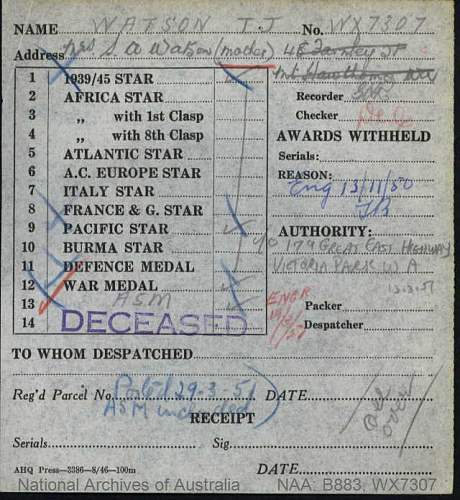 NAME WATSON T.J No. WX7307
Address Mrs S. A Watson (mother) 48 St
Mt Hawthorne
1 1939/45 STAR
2 AFRICA STAR
3 „ with 1st Clasp
4 „ with 8th Clasp
5 ATLANTIC STAR
6 A.C. EUROPE STAR
7 ITALY STAR
8 FRANCE & G. STAR
9 PACIFIC STAR
10 BURMA STAR
11 DEFENCE MEDAL
12 WAR MEDAL
13 ASM
14 DECEASED
Recorder
Checker
AWARDS WITHHELD
Serials:
REASON:
Eng 13/11/50
AUTHORITY:
C/O 179 GREAT EAST HIGHWAY
VICTORIA PARK W A
13.3.51
ENGR
Packer
Despatcher
TO WHOM DESPATCHED
Reg'd Parcel No. 29-3-51 DATE
ASM included
RECEIPT
Serials Sig.
AHQ Press—3386—8/46—100m DATE
National Archives of Australia NAA: B883, WX7307